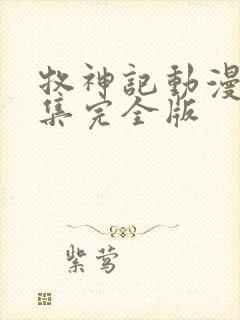 牧神記動漫
集完全版
紫莺